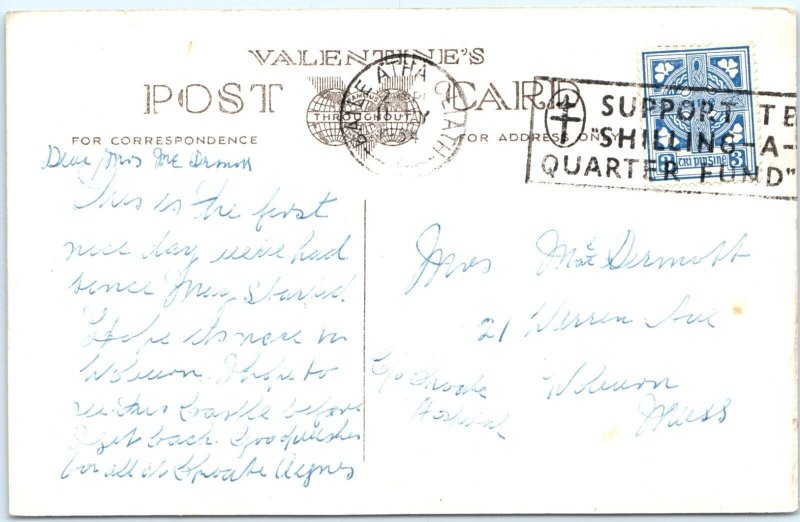 VALENTINE'S
POST CARD
FAMOUS
THROUGHOUT
FOR CORRESPONDENCE
FOR ADDRESS ON
BAILE ÁTHA CLIATH
SUPPORT TE
"SHILLING-A-
QUARTER FUND"
3 TRI PINSINE 3
Dear Mrs McDermott
This is the first
nice day we've had
since Mey started
Hope its nice in
Woburn. I hope to
see this Castle before
I get back. Good wishes
for all at Choate Agnes
Mrs McDermott
21 Warren Ave
C/o Choate Woburn
Hospital Mass